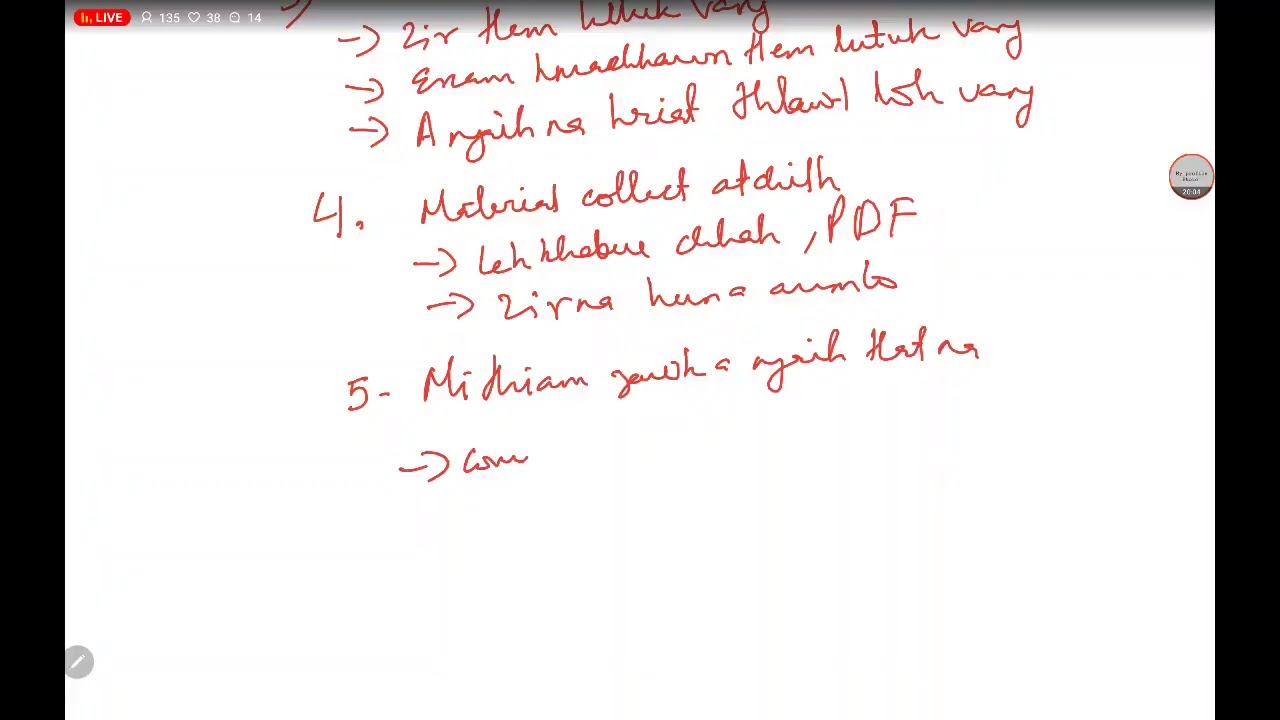 LIVE 135 38 14
→ Zir tlem lutuk vang
→ Exam hmachhawn tlem lutuk vang
→ A ngaihna hriat thlawt loh vang
4. Material collect at
→ Lehkhabu chhah, PDF
→ Zirna hun a aumlo
5- Mi thiam zawk a ngaih that na
→ Com
My profile
20:04